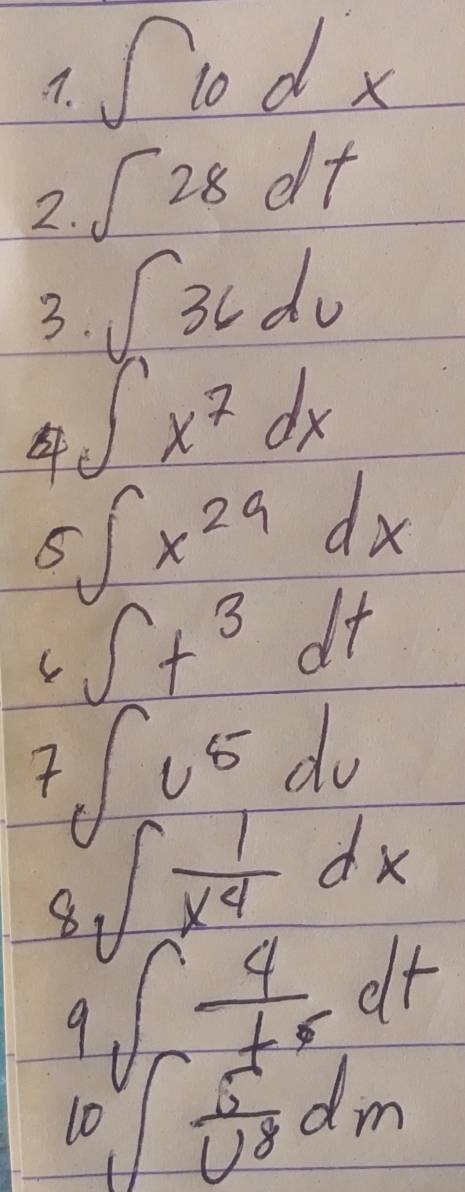 1. ∫ 10 d x
2. ∫ 28 dt
3. ∫ 36 du
4 ∫ x⁷ dx
5 ∫ x²⁹ dx
6 ∫ t³ dt
7 ∫ u⁵ du
8. ∫ 1/x⁴ dx
9 ∫ 4/t⁵ dt
10 ∫ 5/u⁸ dm